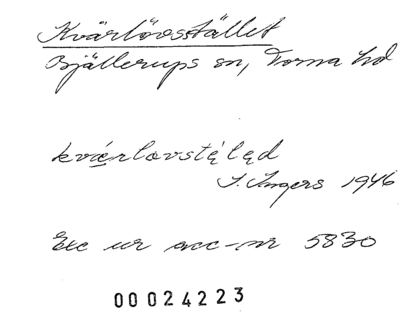 Kvärlövsstället
Bjällerups sn, Torna hd
kværlovstęlęd
I. Ingers 1946
Exc ur acc-nr 5830
00024223